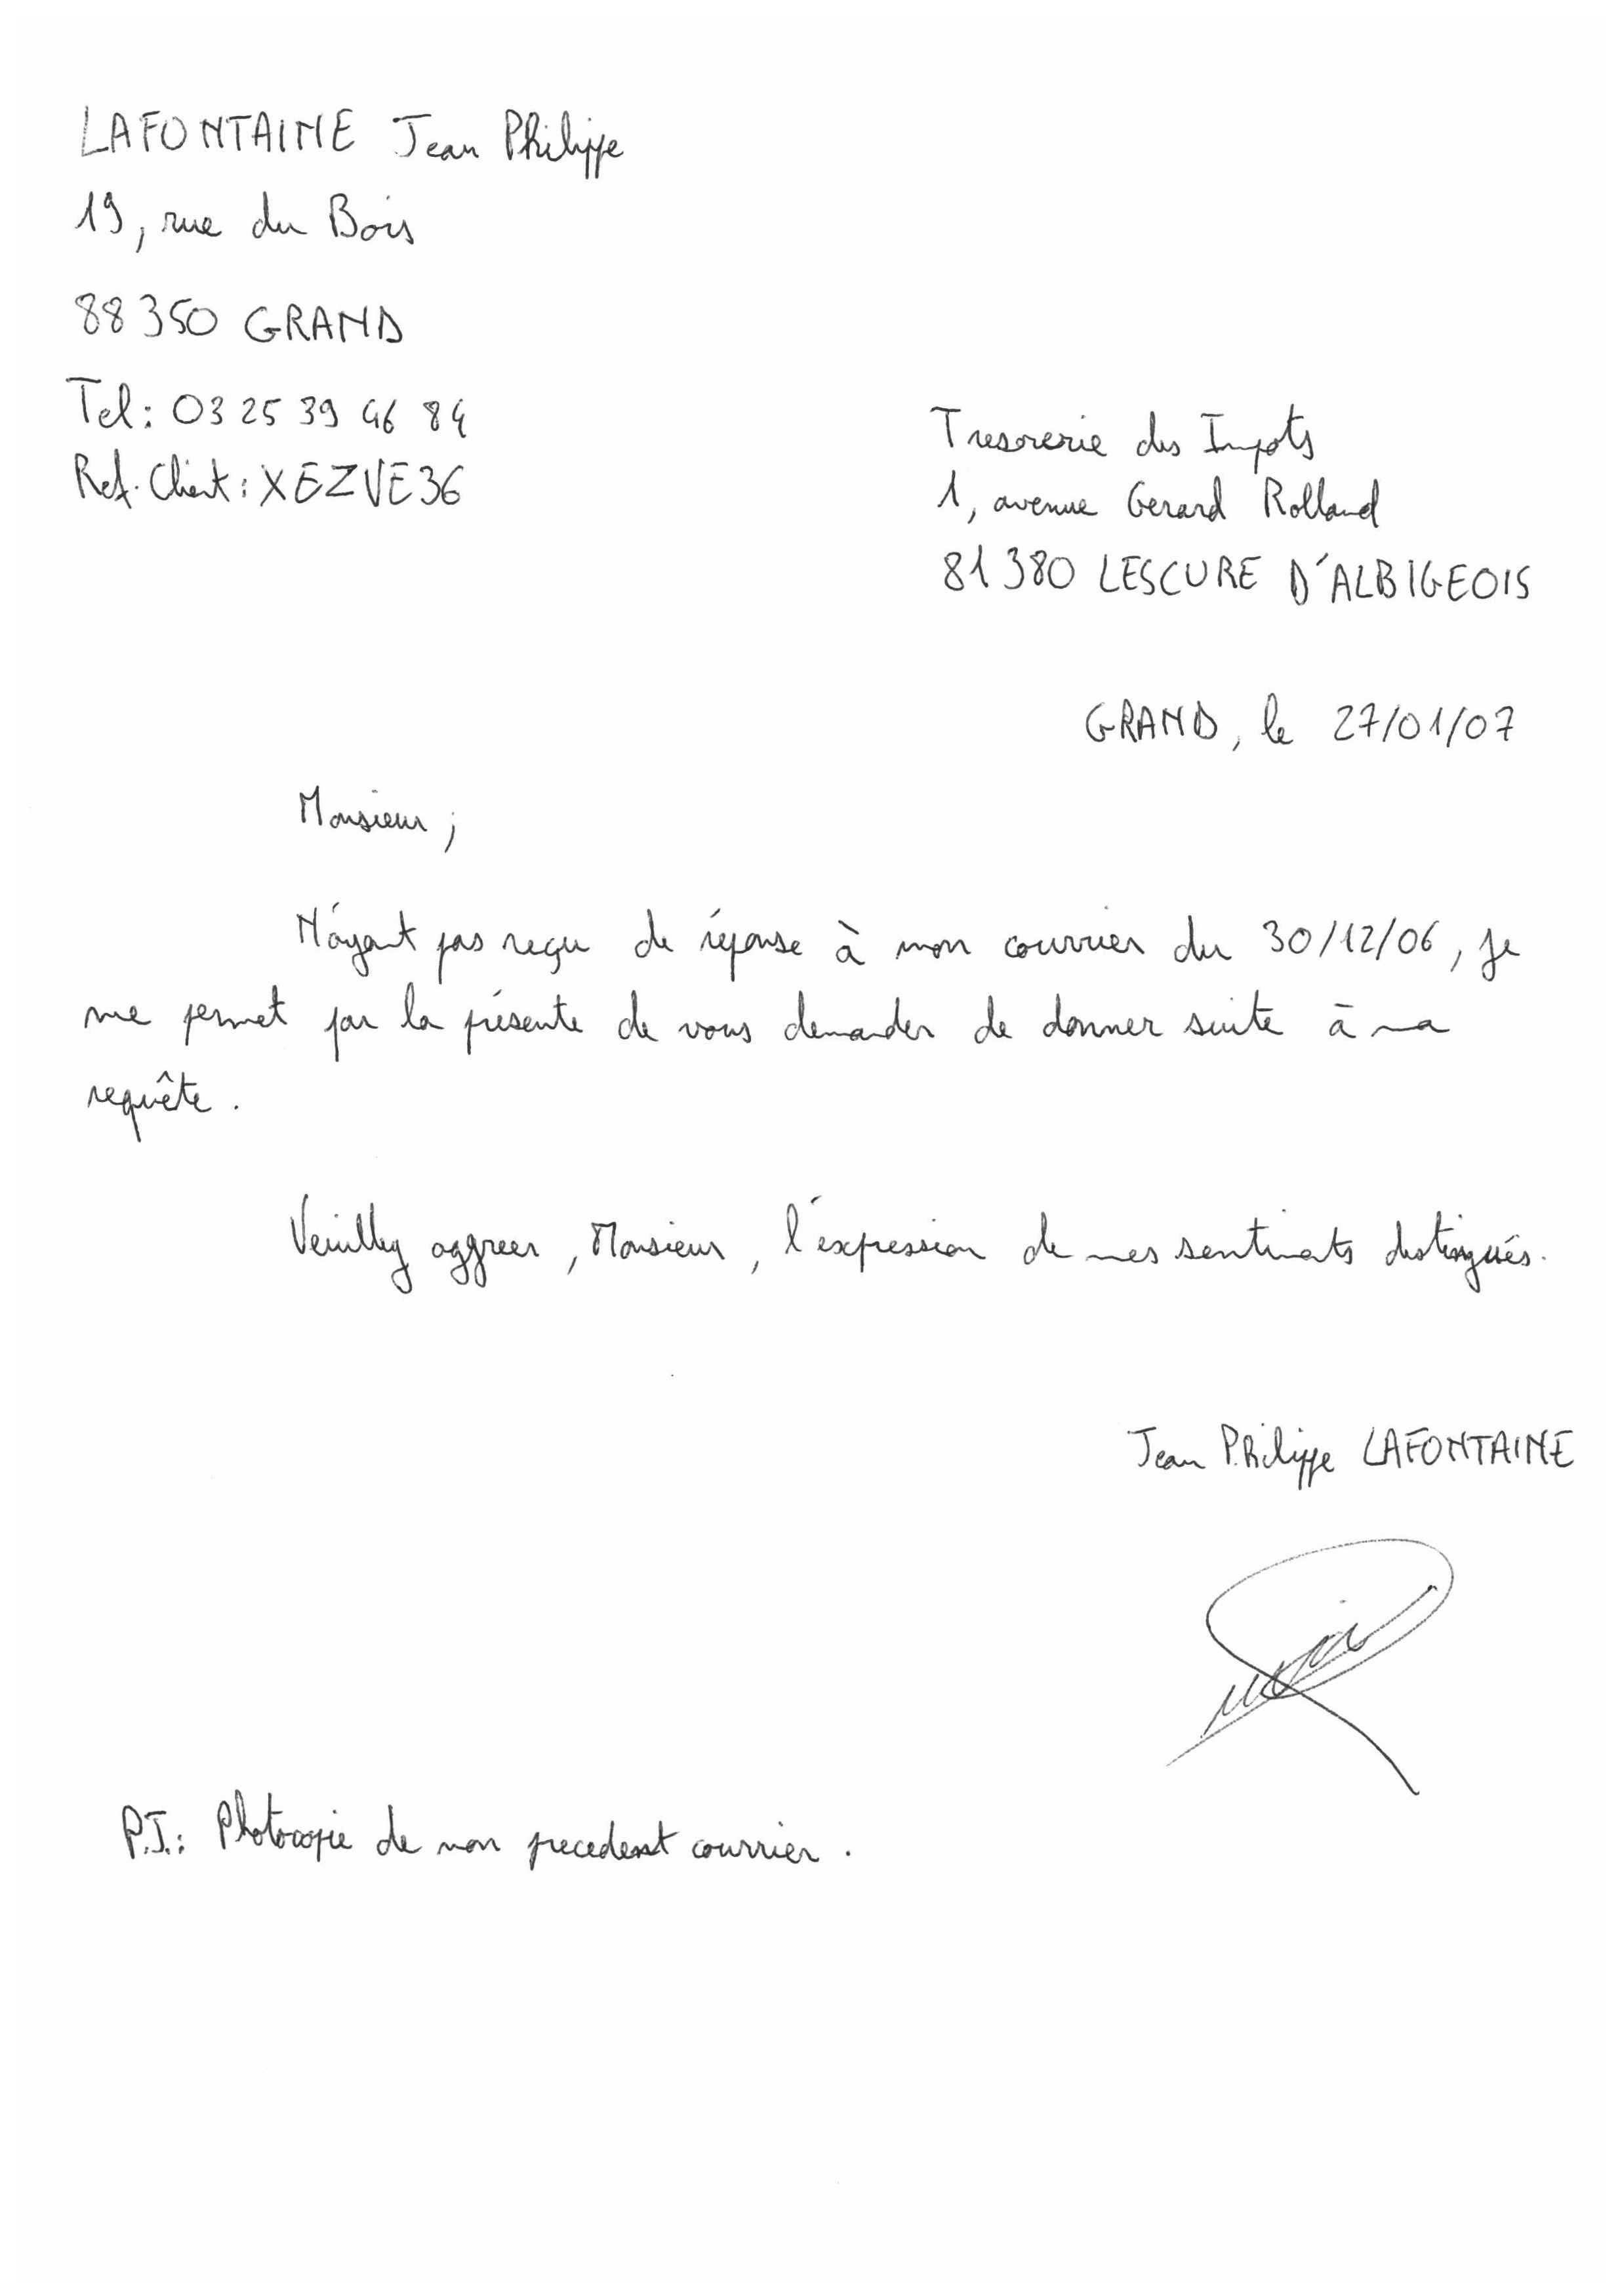 LAFONTAINE Jean Philippe
19, rue du Bois
88350 GRAND
Tel: 03 25 39 46 84
Ref. Client: XEZVE36
Tresorerie des Impots
1, avenue Gerard Rolland
81380 LESCURE D'ALBIGEOIS
GRAND, le 27/01/07
Monsieur;
N'ayant pas reçu de réponse à mon courrier du 30/12/06, je
me permet par la présente de vous demander de donner suite à ma
requête.
Veuillez aggreer, Monsieur, l'expression de mes sentiments distingués.
Jean Philippe LAFONTAINE
P.J.: Photocopie de mon precedent courrier.